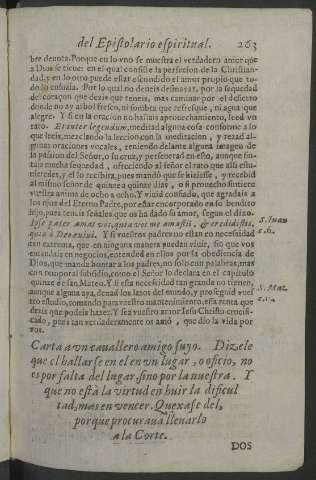 del Epistolario espiritual. 263
bre denota. Porque en lo vno se muestra el verdadero amor que
a Dios se tiene: en el qual consiste la perfecion de la Christian-
dad, y en lo otro puede estar escondido el amor propio que to-
do lo enfucia. Por lo qual no deueis desmayar, por la sequedad
del coraçon que dezis que teneis, mas caminar por el desierto
donde no ay arbol fresco, ni sombra que refresque, ni agua que
alegre. Y si en la oracion no hallais aprouechamiento, leed vn
rato. Et inter legendum, meditad alguna cosa conforme a lo
que leeis, mezclando la leccion con la meditacion, y rezad al-
gunas oraciones vocales, teniendo delante alguna imagen de
la pasion del Señor, o su cruz, y perseterad en esto, aunque sin-
tais mucha sequedad, ofreciendo al Señor el rato que alli estu-
uieredes, y el lo recibira, pues mandò que se hiziesse, y recebid
al mismo señor de quinze a quinze dias, o si prouecho sintiere
vuestra anima de ocho a ocho. Y viuid confiado, que agradais a
los ojos del Eterno Padre, por estar encorporado en su bendito
hijo, pues teneis señales que os ha dado su amor, segun el dixo.
Ipse pater amat vos, quia vos me amastis, & credidistis,
quia à Deo exiui. Y si vuestros padres no estan en necesidad
S. Iuan
c. 16.
tan extrema, que en ninguna manera puedan viuir, sin que vos
entendais en negocios, entended en ellos por la obediencia de
Dios, que manda honrar a los padres, no solo con palabras, mas
con temporal subsidio, como el Señor lo declara en el capitulo
quinze de san Mateo. Y si esta necesidad tan grande no tienen,
S. Mat.
aunque alguna aya, dexad los lazos del mundo, y proseguid vues-
tro estudio, tomando para vuestro mantenimiento, essa renta que
dezis que podeis hazer. Y sea vuestro amor Iesu Christo crucifi-
cado, pues tan verdaderamente os amò, que dio la vida por
vos.
Carta a vn cauallero amigo suyo. Dizele
que el hallarse en el en vn lugar, o oficio, no
es por falta del lugar, sino por la nuestra. Y
que no està la virtud en huir la dificul
tad, mas en vencer. Quexase del,
porque procuraua lleuarlo
a la Corte.
DOS